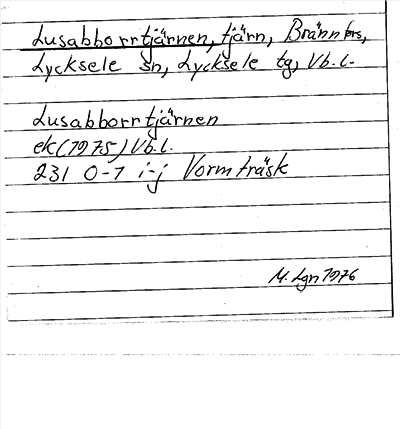 Lusabborrtjärnen, tjärn, Brännfors,
Lycksele sn, Lycksele tg, Vb.l.
Lusabborrtjärnen
ek(1975) Vb.l.
231 0-1 i-j Vormträsk
M. Lgn 1976